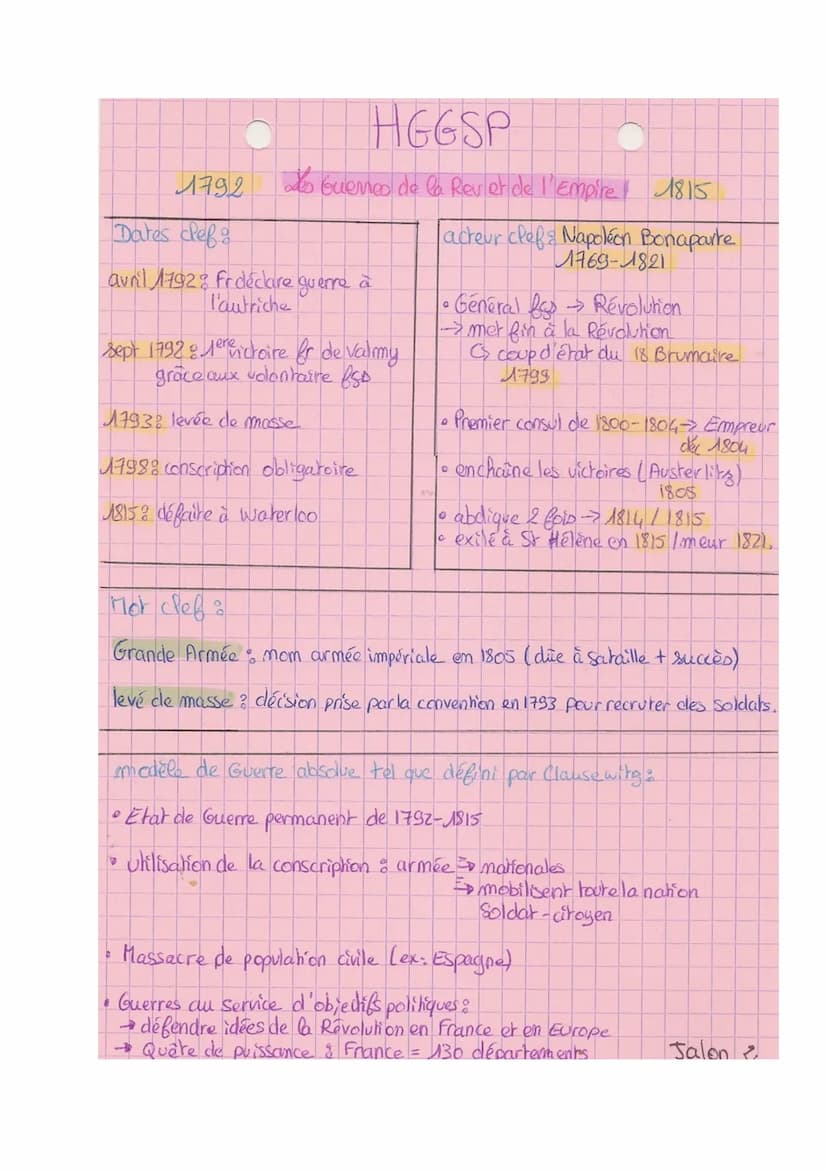 HGGSP
1792 Les Guerres de la Rev et de l'Empire 1815
Dates clef :
avril 1792 : Fr déclare guerre à
l'autriche
Sept 1792 : 1ere victoire fr de Valmy
grâce aux volontaire fs
1793 : levée de masse
1798 : conscription obligatoire
1815 : défaite à Waterloo
acteur clef : Napoléon Bonaparte
1769-1821
• Général fs → Révolution
→ met fin à la Révolution
↳ coup d'état du 18 Brumaire
1799
• Premier consul de 1800-1804 → Empreur
déc 1804
• enchaîne les victoires (Austerlitz)
1805
• abdique 2 fois → 1814 / 1815
• exilé à St Hélène en 1815 / meur 1821.
Mot clef :
Grande Armée : nom armée impériale en 1805 (dûe à sa taille + succès)
levé de masse : décision prise par la convention en 1793 pour recruter des soldats.
modèle de Guerre absolue tel que défini par Clausewitz :
• Etat de Guerre permanent de 1792-1815
• utilisation de la conscription : armée ⇒ nationales
⇒ mobilisent toute la nation
Soldat-citoyen
• Massacre de population civile (ex: Espagne)
• Guerres au service d'objectifs politiques :
→ défendre idées de la Révolution en France et en Europe
→ Quête de puissance : France = 130 départements
Jalon 2